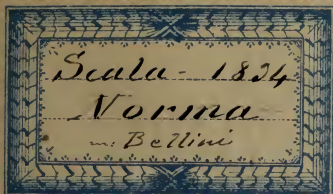 Scala - 1834
Norma
m: Bellini